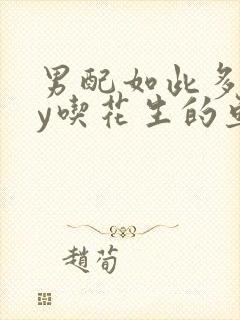 男配如此多
y喫花生的
趙荀